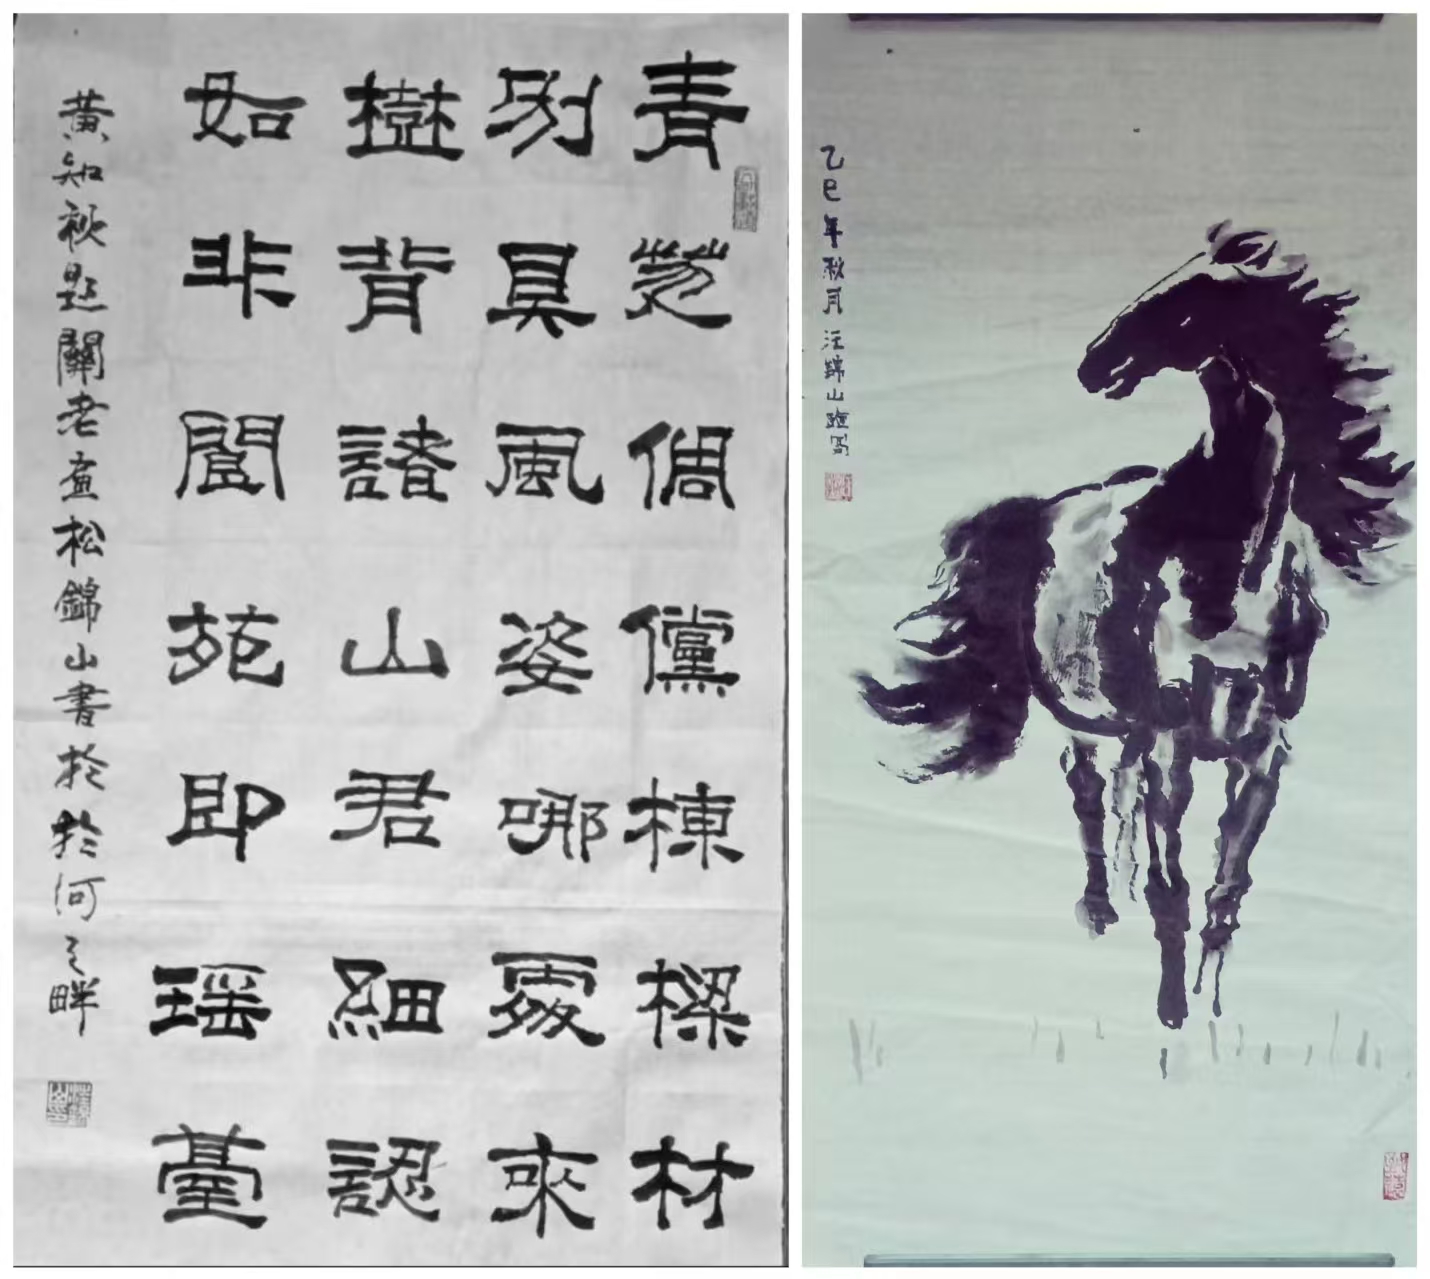 青倜儻棟樑材
別具風姿哪處來
樹背諸山君細認
如非閬苑即瑶臺
黄知秋題關老畫松錦山書於於河之畔
乙巳年秋月汪錦山寫